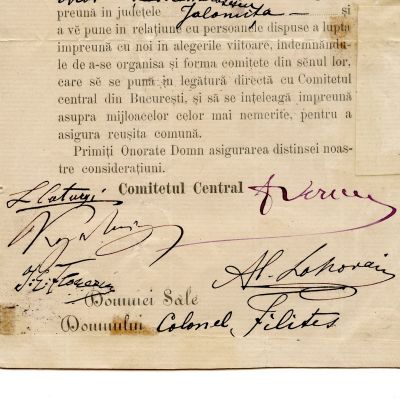 preună in județele Jalomița — și
a vĕ pune in relațiune cu persoanele dispuse a lupta
impreună cu noi in alegerile viitoare, indemnându-
le de a-se organisa și forma comitete din sĕnul lor,
care sĕ se pună in legătură directă cu Comitetul
central din București, și să se ințeleagă impreună
asupra mijloacelor celor mai nemerite, pentru a
asigura reușita comună.
Primiți Onorate Domn asigurarea distinsei noas-
tre considerațiuni.
Comitetul Central
L. Catargi
Al. Lahovari
Domniei Sale
Domnului Colonel, Filites